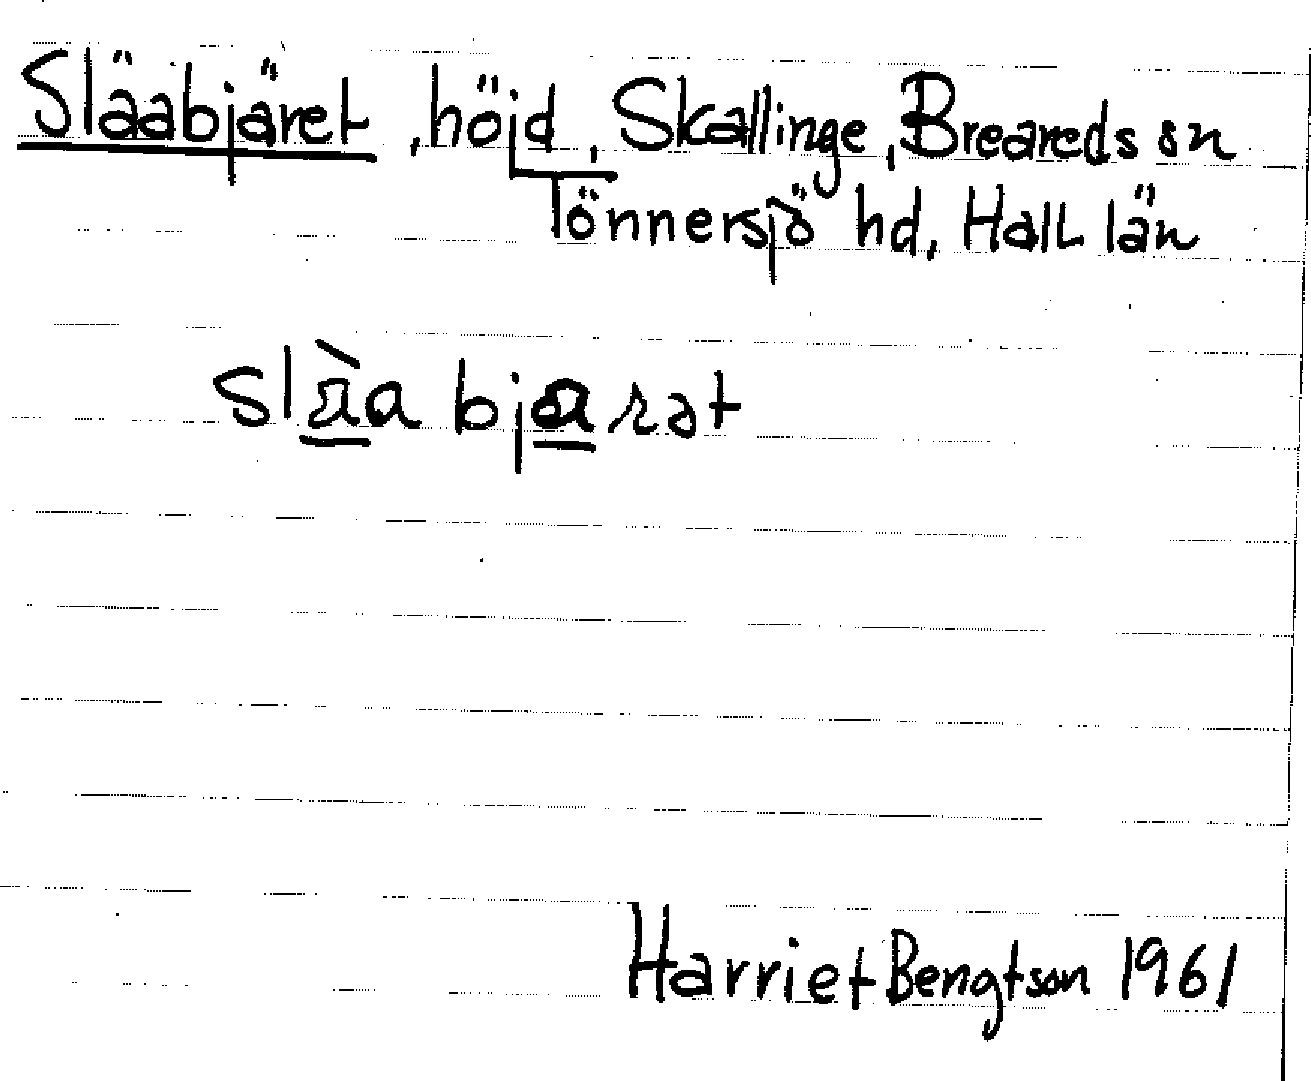 Slääbjäret, höjd, Skallinge, Breareds sn
Tönnersjö hd, Hall län
slàa bjarət
Harriet Bengtson 1961